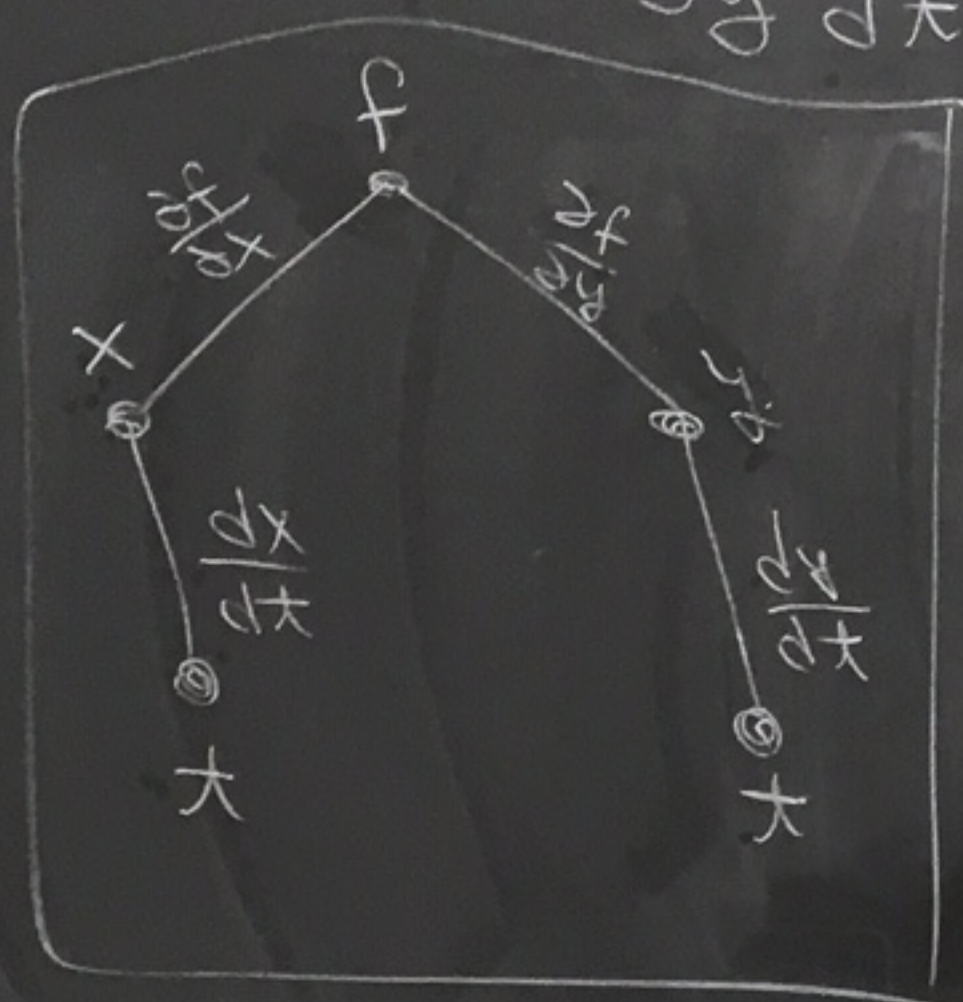 f
∂f/∂x
∂f/∂y
x
y
dx/dt
dy/dt
t
t